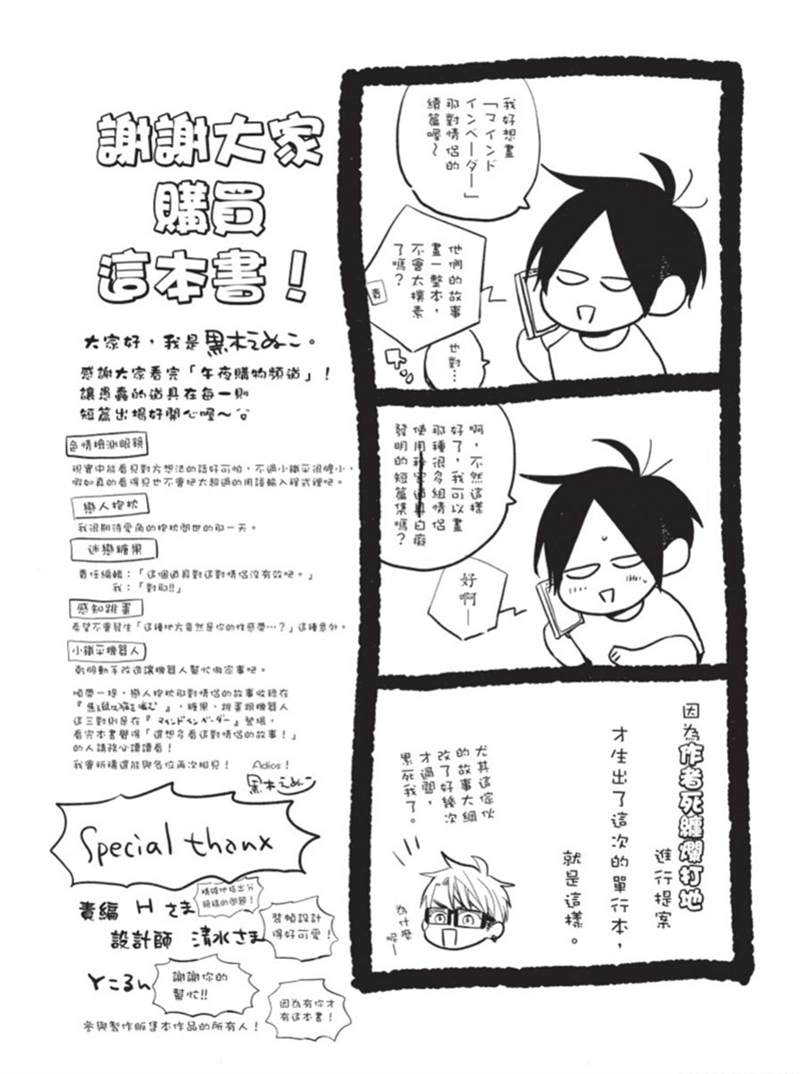 我好想畫
「マインド
インベーダー」
那對情侶的
續篇喔～
他們的故事
畫一整本，
不會太樸素
了嗎？
責
也對…
啊，不然這樣
好了，我可以畫
那種很多組情侶
使用秘密道具白癡
發明的短篇集嗎？
好啊—
因為作者死纏爛打地
進行提案
才生出了這次的單行本，
就是這樣。
尤其這傢伙
的故事大綱
改了好幾次
才過關，
累死我了。
為什麼
喔—
謝謝大家
購買
這本書！
大家好，我是黒木えぬこ。
感謝大家看完「午夜購物頻道」！
讓愚蠢的道具在每一則
短篇出場好開心喔～
色情檢測眼鏡
現實中能看見對方想法的話好可怕，不過小鐵呆很膽小，
假如真的看得見也不會把太超過的用語輸入程式裡吧。
戀人抱枕
我很期待愛角的抱枕問世的那一天。
迷戀糖果
責任編輯：「這個道具對這對情侶沒有效吧。」
我：「對耶!!」
感知跳蛋
希望不要發生「這種地方竟然是你的性感帶…？」這種意外。
小鐵呆機器人
乾脆動手改造讓機器人幫忙做家事吧。
順帶一提，戀人抱枕那對情侶的故事收錄在
糖果、跳蛋跟機器人
這三對則是在『マインドインベーダー』登場，
看完本書覺得「還想多看這對情侶的故事！」
的人請務必讀讀看！
我會祈禱還能與各位再次相見！ Adios！
黒木えぬこ
Special thanx
責編 Hさま
設計師 清水さま
裝幀設計
得好可愛！
ところん
謝謝你的
幫忙!!
因為有你才
有這本書！
參與製作販售本作品的所有人！